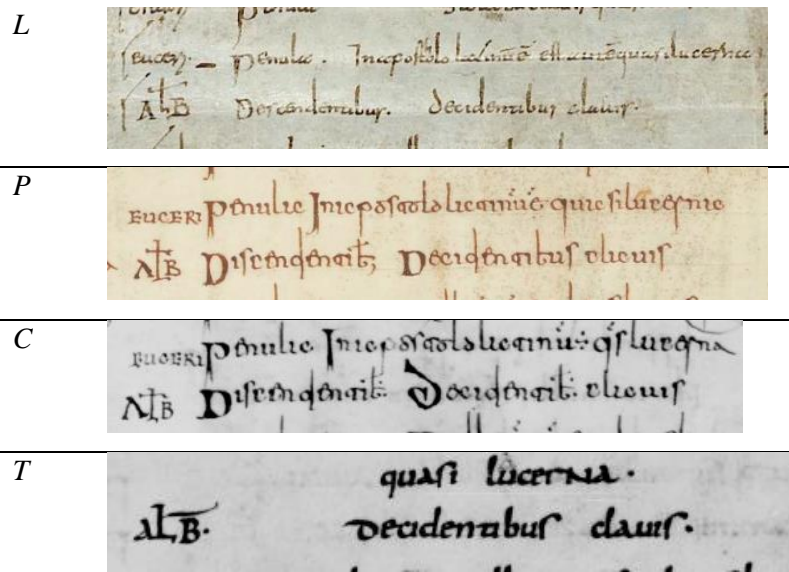 L
Penula . In apostolo quasi lucerna
ALB Descendentibus. decidentibus clavis.
P
EUCERI Penula In apostolo quasi lucerna
ALB Discendentib; Decidentibus clavis
C
EUCERI Penula In apostolo lucerna
ALB Discendentib. Decidentib. clavis
T
quasi lucerna .
ALB. Decidentibus clavis .